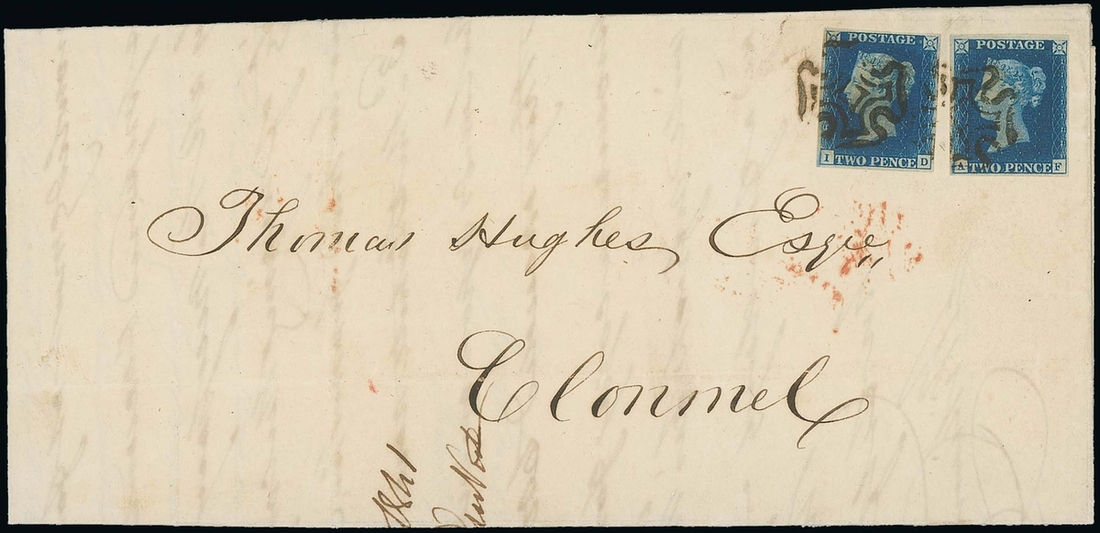 POSTAGE
TWO PENCE
I D
POSTAGE
TWO PENCE
A F
Thomas Hughes Esqre,,
Clonmel
1841